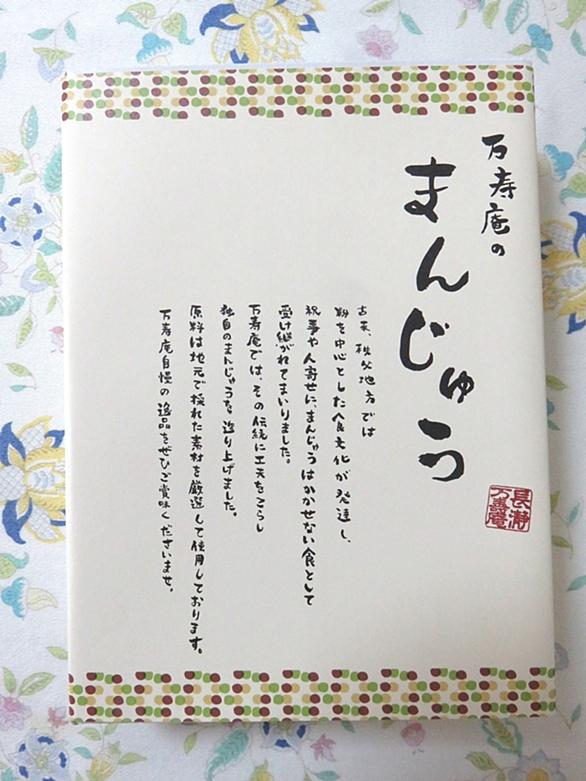 万寿庵の
まんじゅう
長瀞
万寿庵
古来、秩父地方では
粉を中心とした食文化が発達し、
祝事や人寄せに、まんじゅうはかかせない食として
受け継がれてまいりました。
万寿庵では、その伝統に工夫をこらし
独自のまんじゅうを造り上げました。
原料は地元で採れた素材を厳選して使用しております。
万寿庵自慢の逸品をぜひご賞味くださいませ。